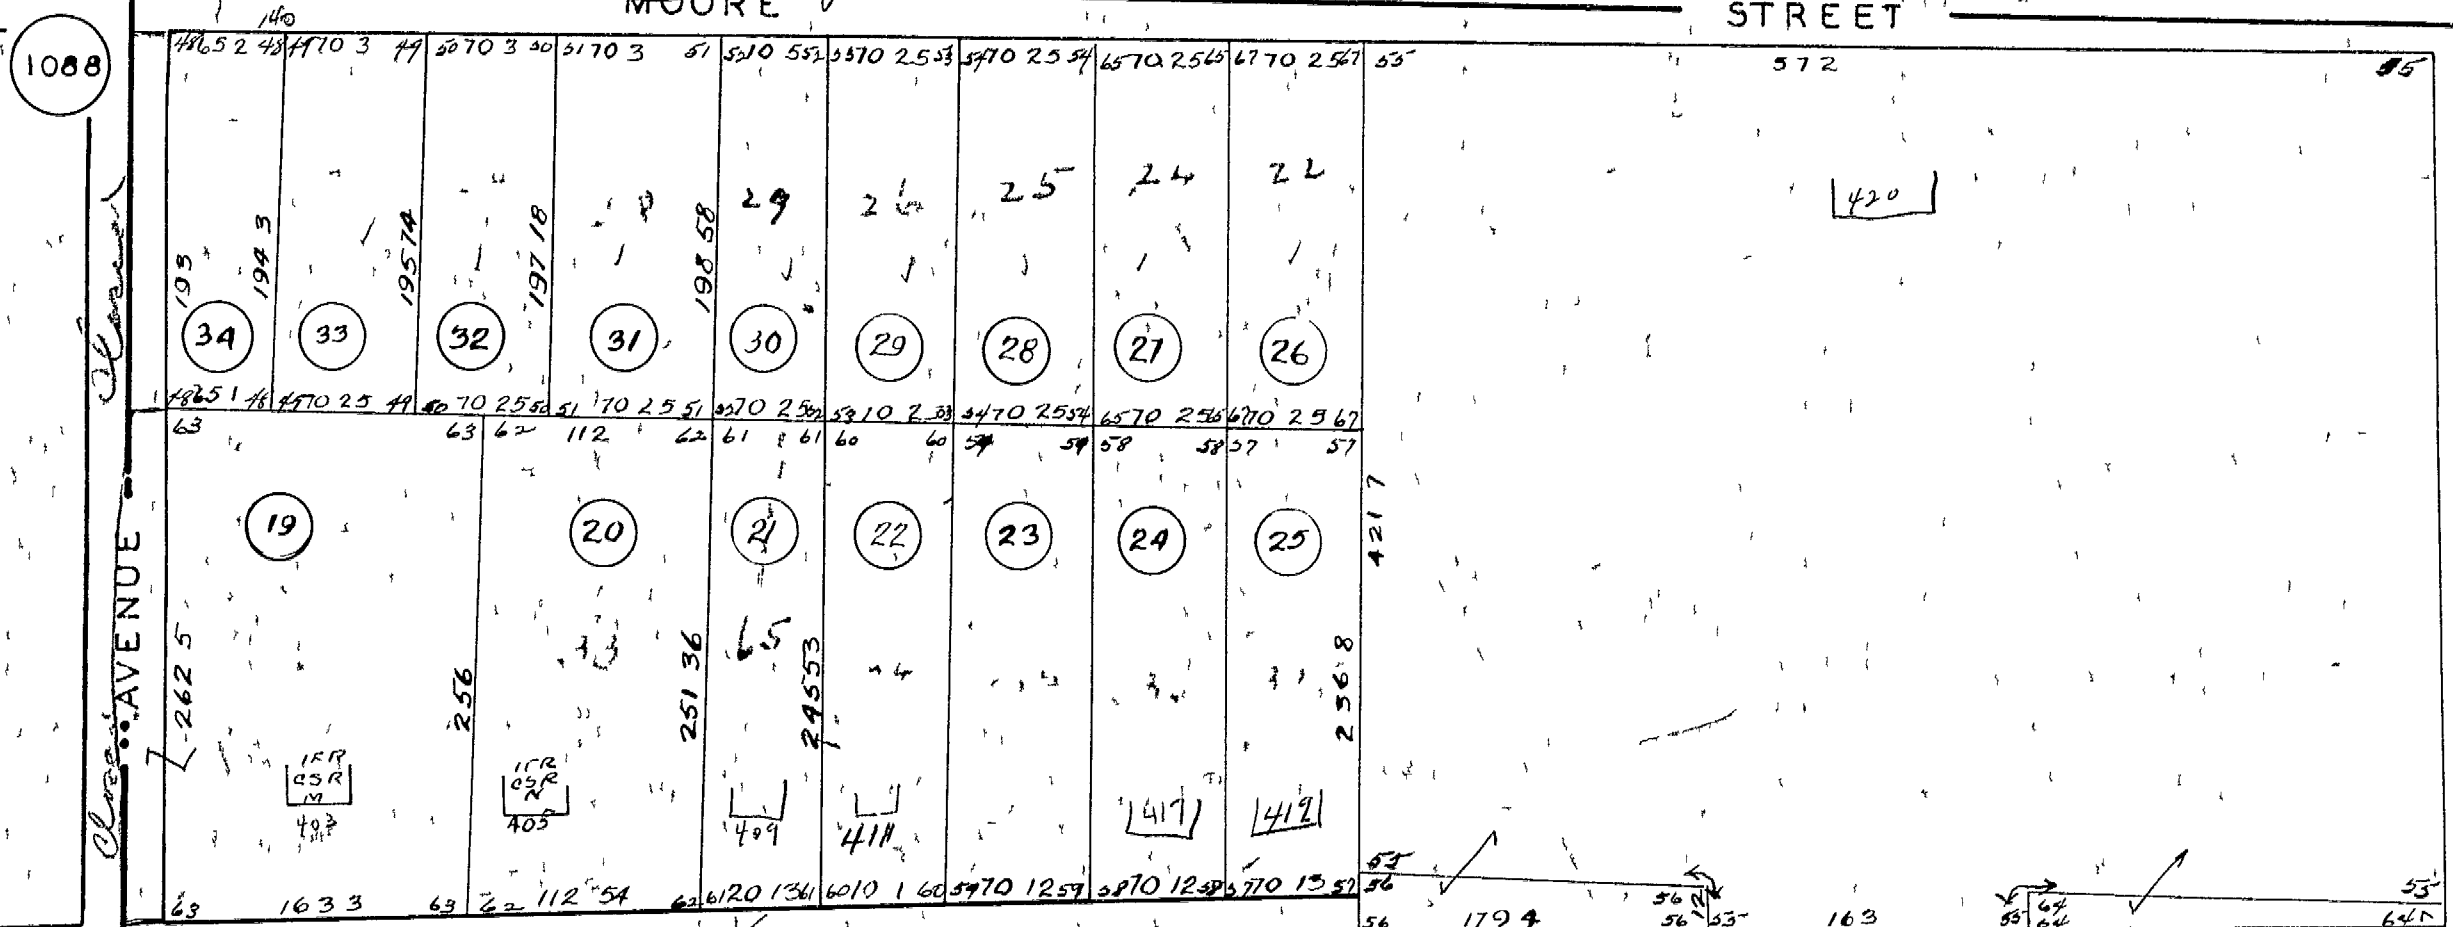 MOORE STREET
1088
140
48 65 2 48 49 70 3 49 50 70 3 50 51 70 3 51 52 70 5 52 53 70 25 53 54 70 25 54 65 70 25 65 67 70 25 67 55 572 55
29 26 25 24 22
420
193 194 3 195 74 197 18 198 58
34 33 32 31 30 29 28 27 26
48 65 1 48 49 70 25 49 50 70 25 50 51 70 25 51 52 70 25 52 53 70 2 53 54 70 25 54 65 70 25 65 67 70 25 67
63 63 62 112 62 61 61 60 60 59 59 58 58 57 57
421 7
19 20 21 22 23 24 25
AVENUE
65
262 5 256 251 36 245 53 236 8
1FR 1FR
CSR CSR
M N
403 405 409 411 417 419
55 55
63 163 3 63 62 112 54 62 61 20 13 61 60 70 1 60 59 70 12 59 58 70 12 58 57 70 13 57 56 56 12 64
56 179 4 56 55 163 55 64 64